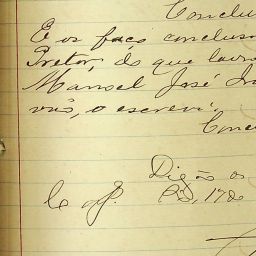 Conclu
E os faço conclusos
Pretor, do que lavro
Manoel José
vão, o escrevi.
Conc
Digão os